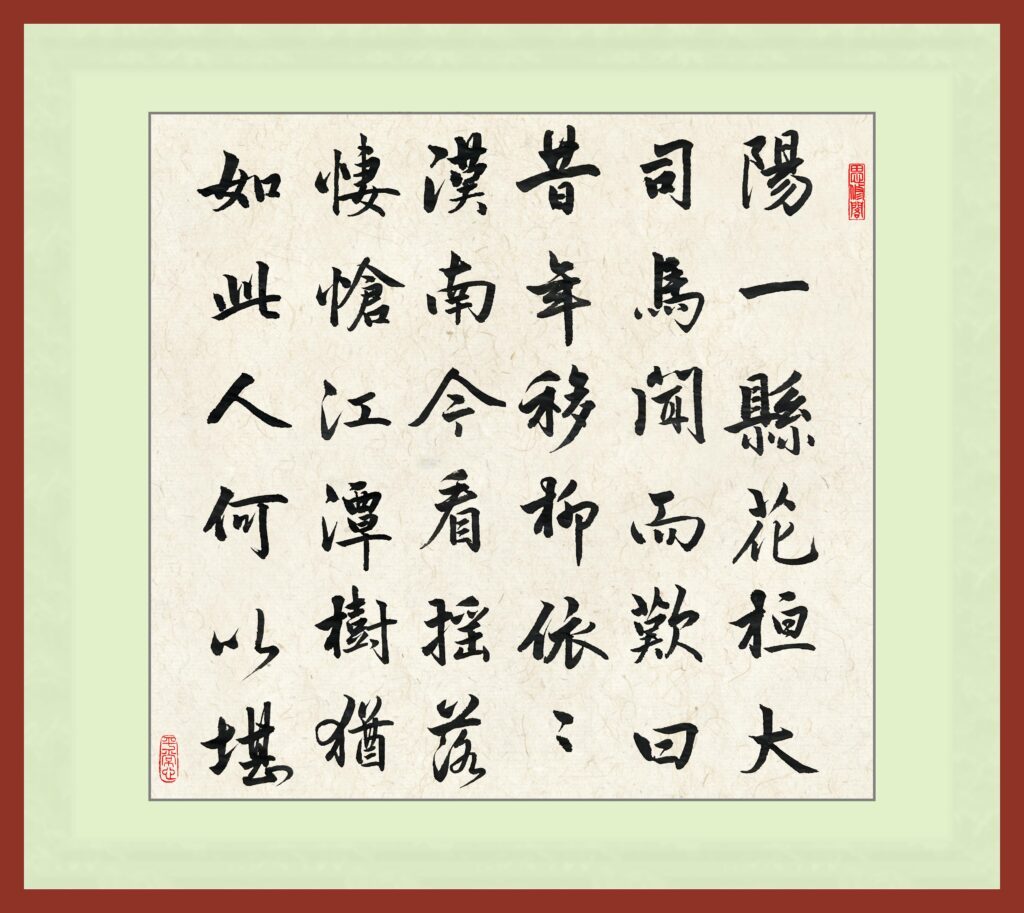 陽一縣花桓大
司馬聞而歎曰
昔年移柳依〻
漢南今看搖落
悽愴江潭樹猶
如此人何以堪
平常心